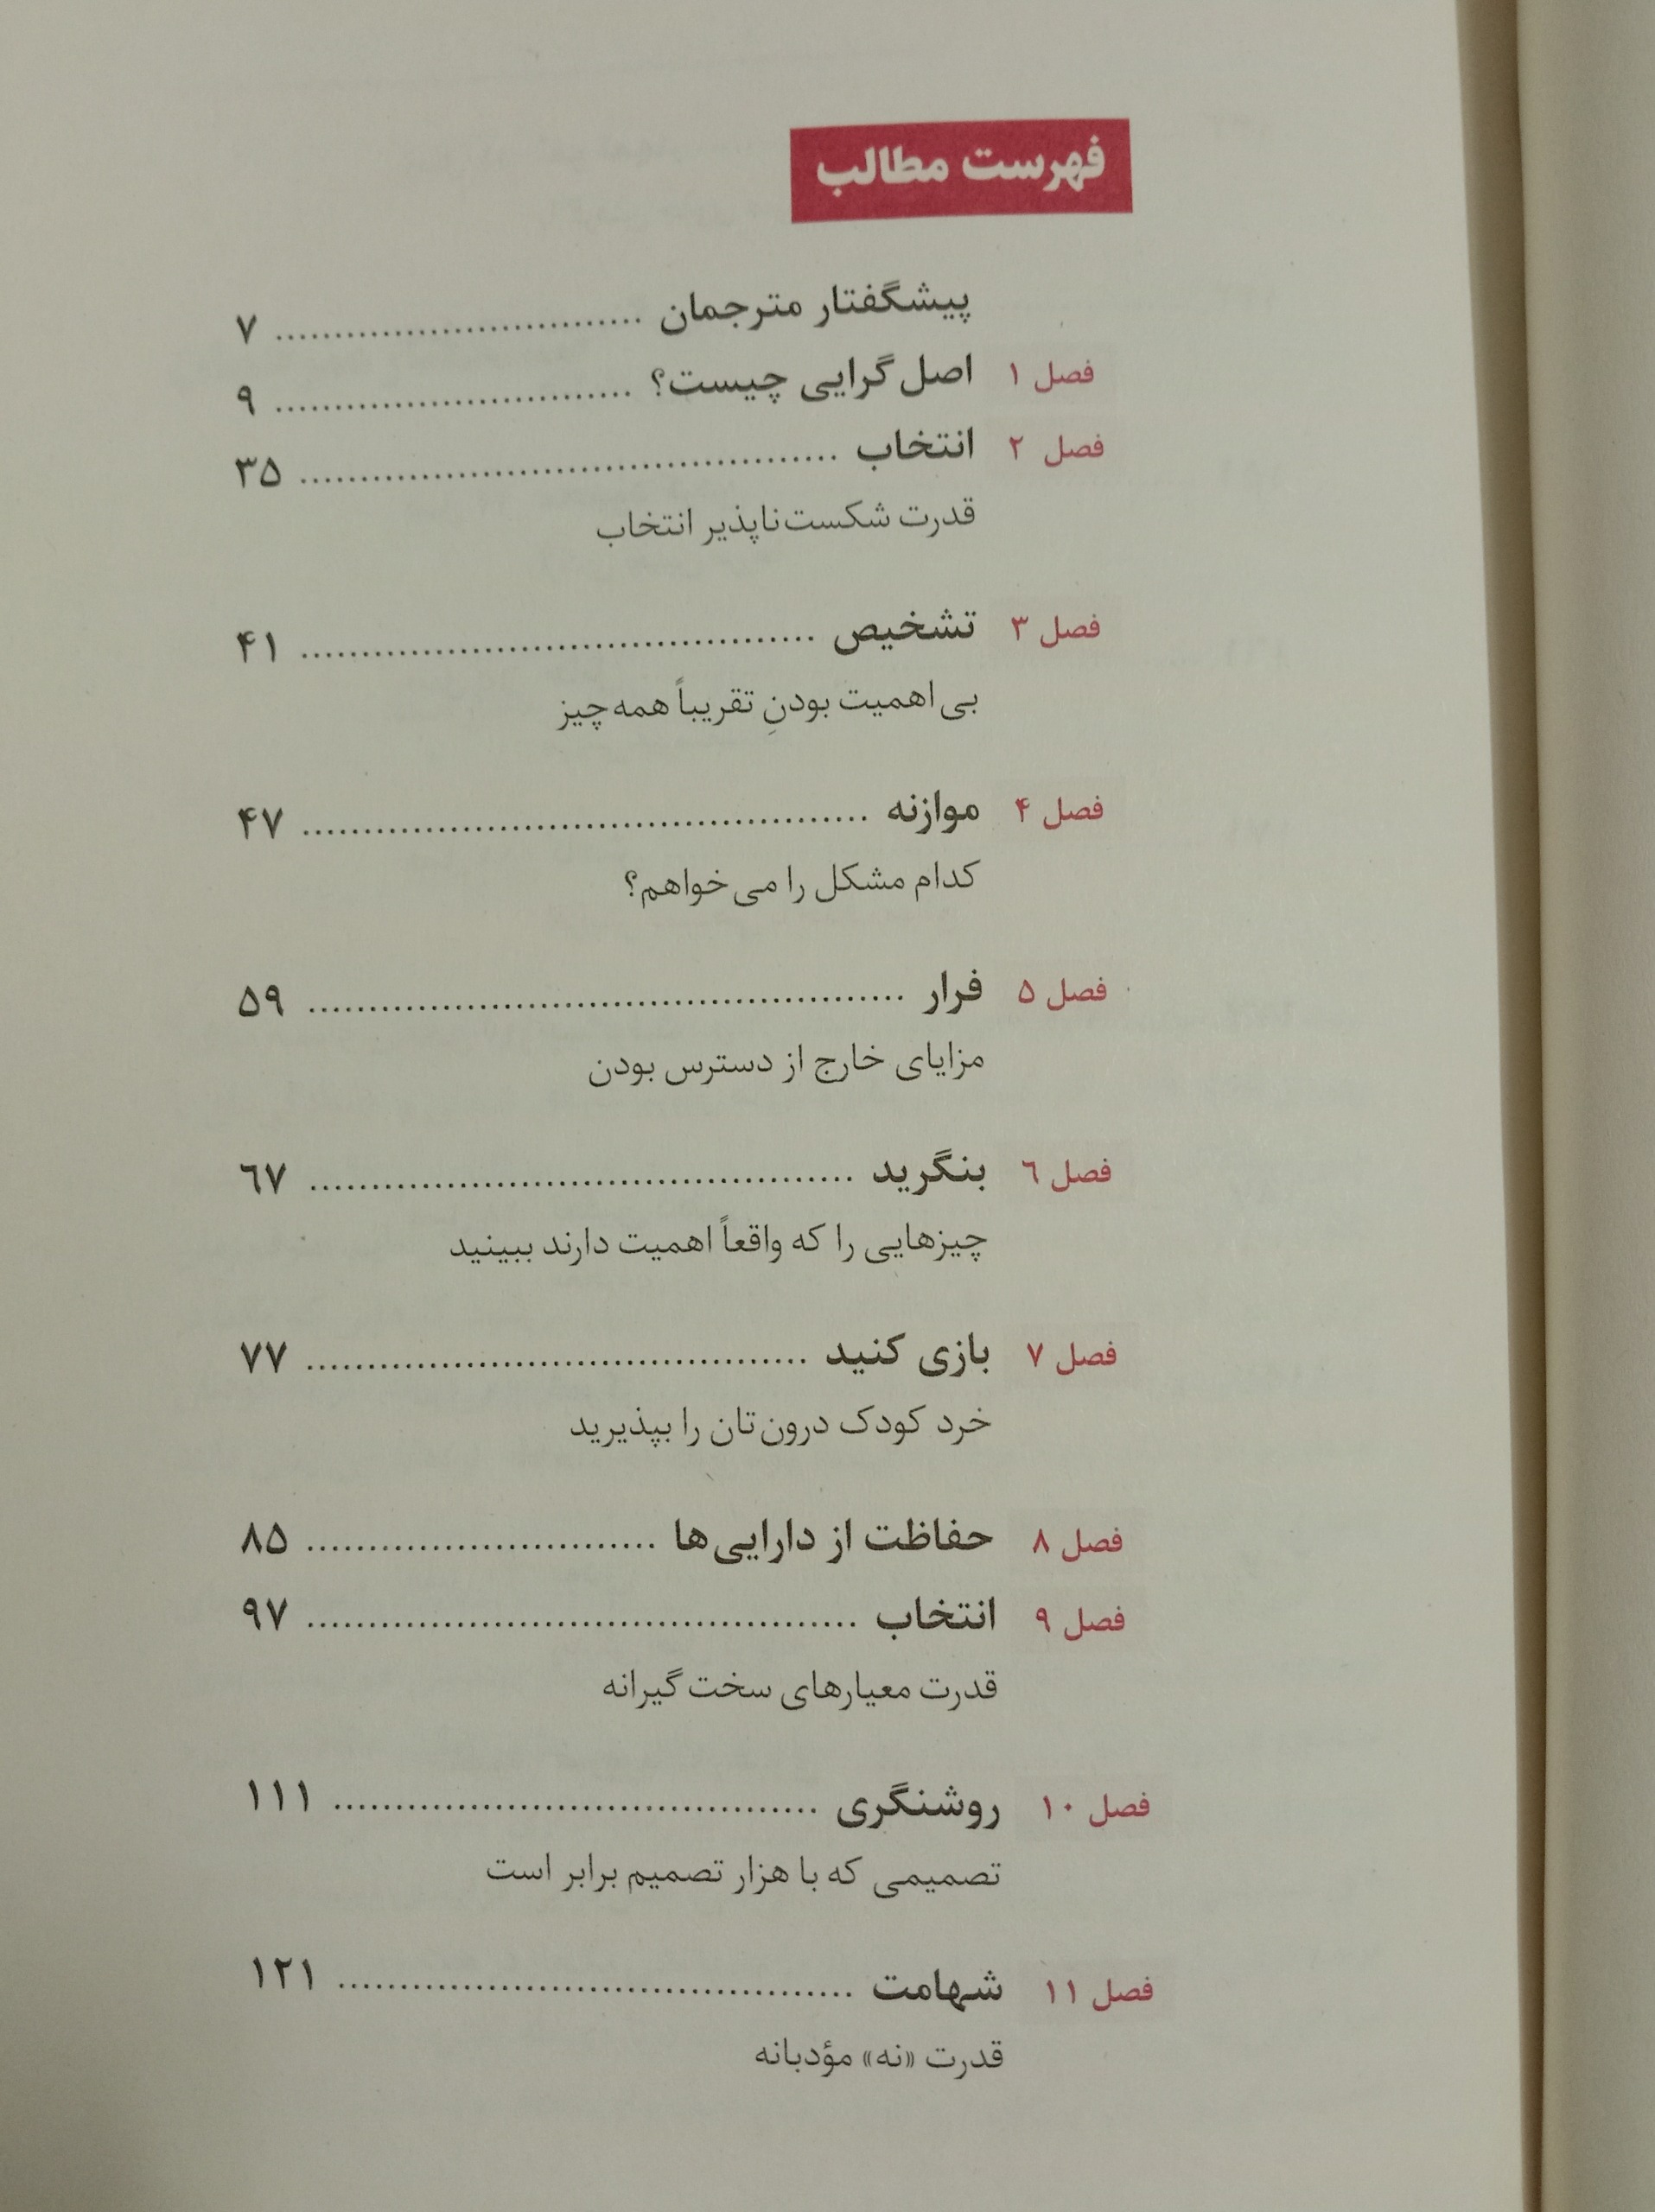 فهرست مطالب
پیشگفتار مترجمان .............................. ۷
فصل ۱ اصل‌گرایی چیست؟ .............................. ۹
فصل ۲ انتخاب ............................................ ۳۵
قدرت شکست‌ناپذیر انتخاب
فصل ۳ تشخیص .......................................... ۴۱
بی‌اهمیت بودنِ تقریباً همه‌چیز
فصل ۴ موازنه .............................................. ۴۷
کدام مشکل را می‌خواهم؟
فصل ۵ فرار ................................................ ۵۹
مزایای خارج از دسترس بودن
فصل ٦ بنگرید ............................................ ٦۷
چیزهایی را که واقعاً اهمیت دارند ببینید
فصل ۷ بازی کنید ......................................... ۷۷
خرد کودک درون‌تان را بپذیرید
فصل ۸ حفاظت از دارایی‌ها ............................. ۸۵
فصل ۹ انتخاب ............................................. ۹۷
قدرت معیارهای سخت‌گیرانه
فصل ۱۰ روشنگری ........................................ ۱۱۱
تصمیمی که با هزار تصمیم برابر است
فصل ۱۱ شهامت .......................................... ۱۲۱
قدرت «نه» مؤدبانه